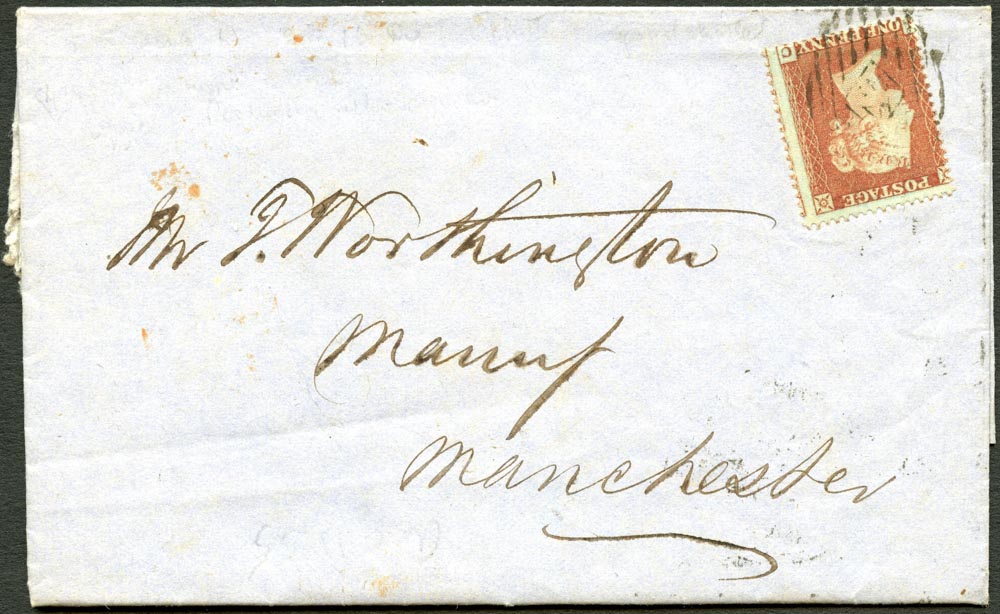 Mr J. Worthington
Manuf
Manchester
POSTAGE
ONE PENNY